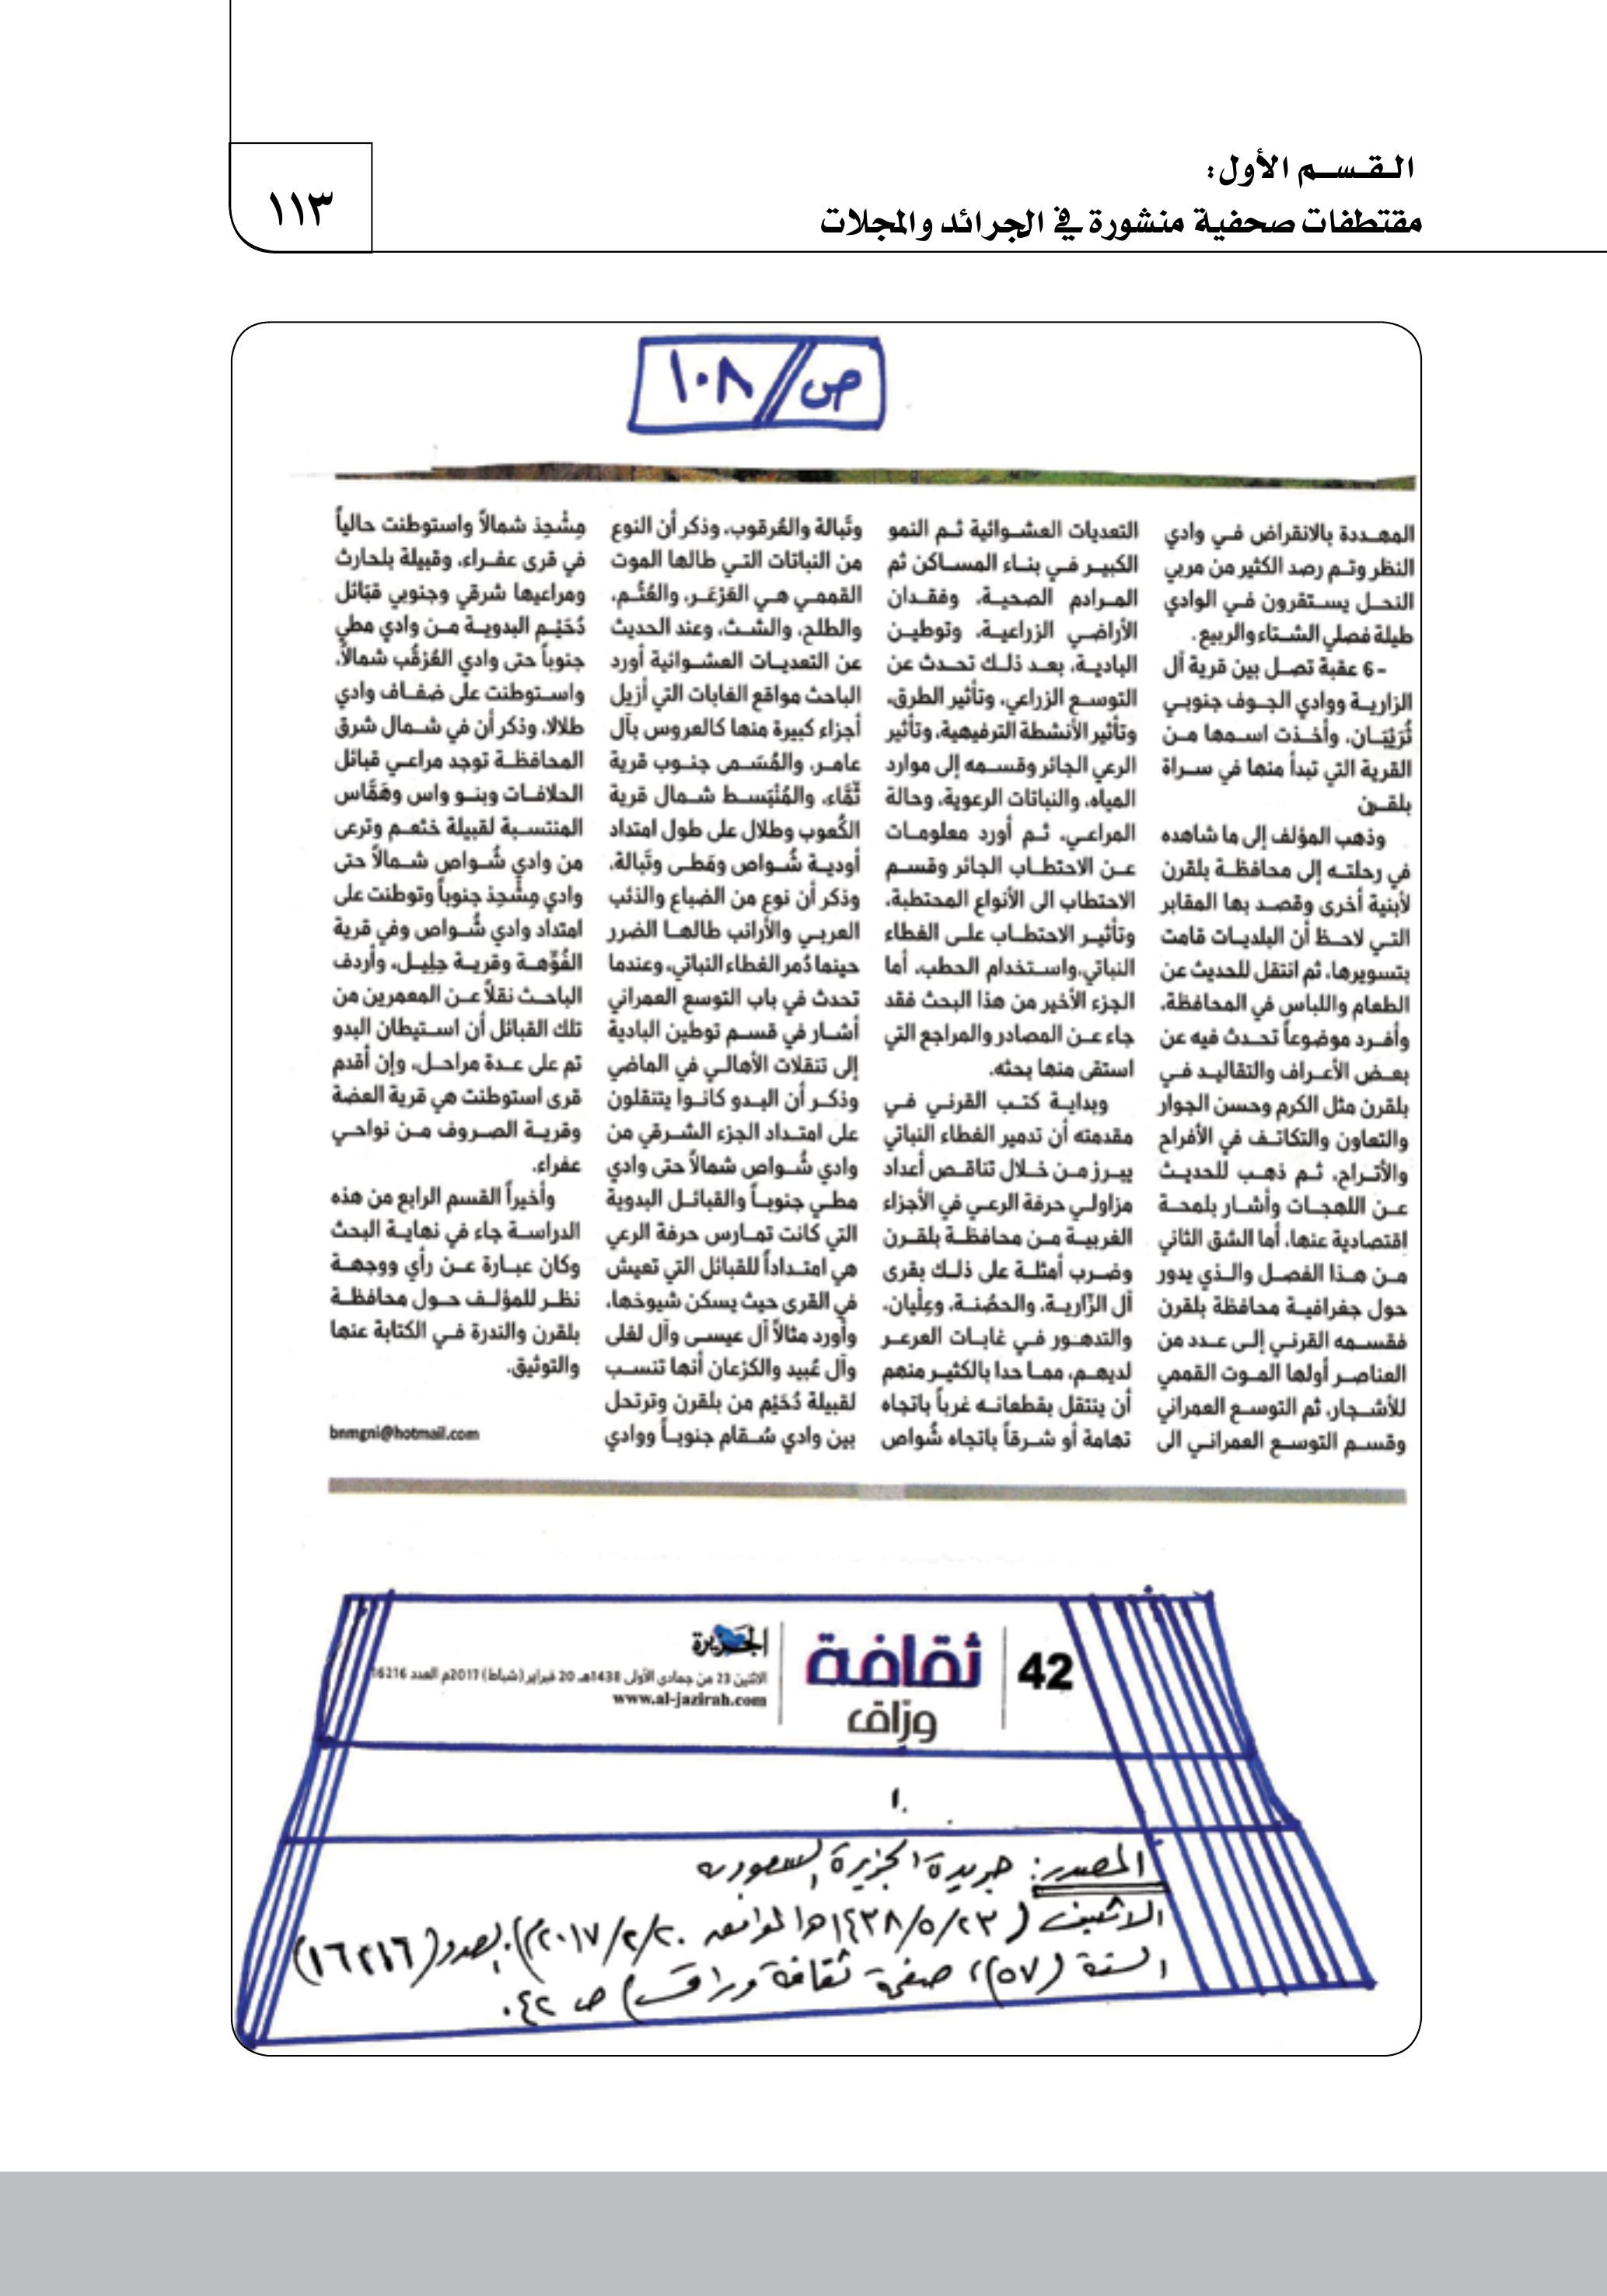 القسم الأول:
مقتطفات صحفية منشورة في الجرائد والمجلات
١١٣
ص // ١٠٨
المهددة بالانقراض في وادي
النظر وتم رصد الكثير من مربي
النحل يستقرون في الوادي
طيلة فصلي الشتاء والربيع.
6- عقبة تصل بين قرية آل
الزارية ووادي الجوف جنوبي
ثُرَيَّان، وأخذت اسمها من
القرية التي تبدأ منها في سراة
بلقرن
وذهب المؤلف إلى ما شاهده
في رحلته إلى محافظة بلقرن
لأبنية أخرى وقصد بها المقابر
التي لاحظ أن البلديات قامت
بتسويرها، ثم انتقل للحديث عن
الطعام واللباس في المحافظة،
وأفرد موضوعاً تحدث فيه عن
بعض الأعراف والتقاليد في
بلقرن مثل الكرم وحسن الجوار
والتعاون والتكاتف في الأفراح
والأتراح، ثم ذهب للحديث
عن اللهجات وأشار بلمحة
اقتصادية عنها، أما الشق الثاني
من هذا الفصل والذي يدور
حول جغرافية محافظة بلقرن
فقسمه القرني إلى عدد من
العناصر أولها الموت القممي
للأشجار، ثم التوسع العمراني
وقسم التوسع العمراني الى
التعديات العشوائية ثم النمو
الكبير في بناء المساكن ثم
المرادم الصحية، وفقدان
الأراضي الزراعية، وتوطين
البادية، بعد ذلك تحدث عن
التوسع الزراعي، وتأثير الطرق،
وتأثير الأنشطة الترفيهية، وتأثير
الرعي الجائر وقسمه إلى موارد
المياه، والنباتات الرعوية، وحالة
المراعي، ثم أورد معلومات
عن الاحتطاب الجائر وقسم
الاحتطاب الى الأنواع المحتطبة،
وتأثير الاحتطاب على الغطاء
النباتي،واستخدام الحطب، أما
الجزء الأخير من هذا البحث فقد
جاء عن المصادر والمراجع التي
استقى منها بحثه.
وبداية كتب القرني في
مقدمته أن تدمير الغطاء النباتي
يبرز من خلال تناقص أعداد
مزاولي حرفة الرعي في الأجزاء
الغربية من محافظة بلقرن
وضرب أمثلة على ذلك بقرى
آل الزّارية، والحصْنة، وعِلْيان،
والتدهور في غابات العرعر
لديهم، مما حدا بالكثير منهم
أن ينتقل بقطعانه غرباً باتجاه
تهامة أو شرقاً باتجاه شُواص
وتَبالة والعُرقوب، وذكر أن النوع
من النباتات التي طالها الموت
القممي هي العَرْعَر، والعُتُم،
والطلح، والشث، وعند الحديث
عن التعديات العشوائية أورد
الباحث مواقع الغابات التي أزيل
أجزاء كبيرة منها كالعروس بآل
عامر، والمُسَمى جنوب قرية
ثَمَّاء، والمُنْبَسط شمال قرية
الكُعوب وطلال على طول امتداد
أودية شُواص ومَطى وتَبالة،
وذكر أن نوع من الضباع والذئب
العربي والأرانب طالها الضرر
حينما دُمر الغطاء النباتي، وعندما
تحدث في باب التوسع العمراني
أشار في قسم توطين البادية
إلى تنقلات الأهالي في الماضي
وذكر أن البدو كانوا يتنقلون
على امتداد الجزء الشرقي من
وادي شُواص شمالاً حتى وادي
مطي جنوباً والقبائل البدوية
التي كانت تمارس حرفة الرعي
هي امتداداً للقبائل التي تعيش
في القرى حيث يسكن شيوخها،
وأورد مثالاً آل عيسى وآل لفلي
وآل عُبيد والكزعان أنها تنسب
لقبيلة دُحَيْم من بلقرن وترتحل
بين وادي سُقام جنوباً ووادي
مِشْحِذ شمالاً واستوطنت حالياً
في قرى عفراء، وقبيلة بلحارث
ومراعيها شرقي وجنوبي قبائل
دُحَيْم البدوية من وادي مطي
جنوباً حتى وادي العُرْقُب شمالاً،
واستوطنت على ضفاف وادي
طلالا، وذكر أن في شمال شرق
المحافظة توجد مراعي قبائل
الحلافات وبنو واس وهَمَّاس
المنتسبة لقبيلة خثعم وترعى
من وادي شُواص شمالاً حتى
وادي مِشْحِذ جنوباً وتوطنت على
امتداد وادي شُواص وفي قرية
الفُوَّهة وقرية جليل، وأردف
الباحث نقلاً عن المعمرين من
تلك القبائل أن استيطان البدو
تم على عدة مراحل، وإن أقدم
قرى استوطنت هي قرية العضة
وقرية الصروف من نواحي
عفراء.
وأخيراً القسم الرابع من هذه
الدراسة جاء في نهاية البحث
وكان عبارة عن رأي ووجهة
نظر للمؤلف حول محافظة
بلقرن والندرة في الكتابة عنها
والتوثيق.
bnmgni@hotmail.com
42
ثقافة
وراق
الجزيرة
الاثنين 23 من جمادى الأولى 1438هـ 20 فبراير (شباط) 2017م العدد 16216
www.al-jazirah.com
المصدر: جريدة الجزيرة السعودية
الاثنين (٢٣/٥/١٤٣٨هـ الموافق ٢٠/٢/٢٠١٧م)، العدد (١٦٢١٦)
السنة (٥٧)، صفحة ثقافة وراق) ص ٤٢.